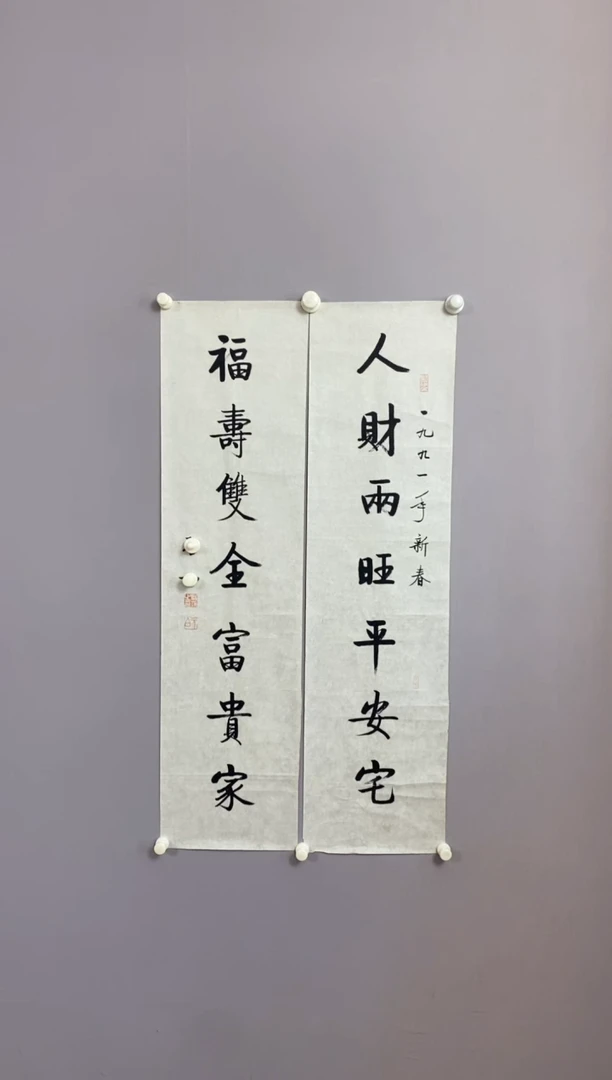 人財兩旺平安宅
一九九一年新春
福壽雙全富貴家